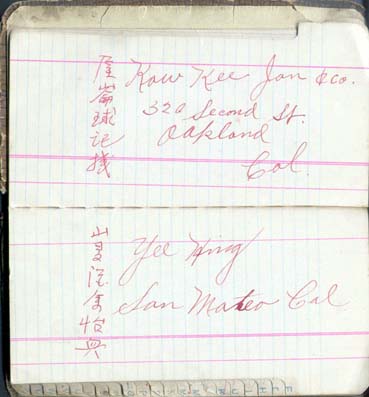 屋崙球记
Kow Kee Jan & co.
320 Second St.
Oakland
Cal.
山
怡興
Yee Hing
San Mateo Cal